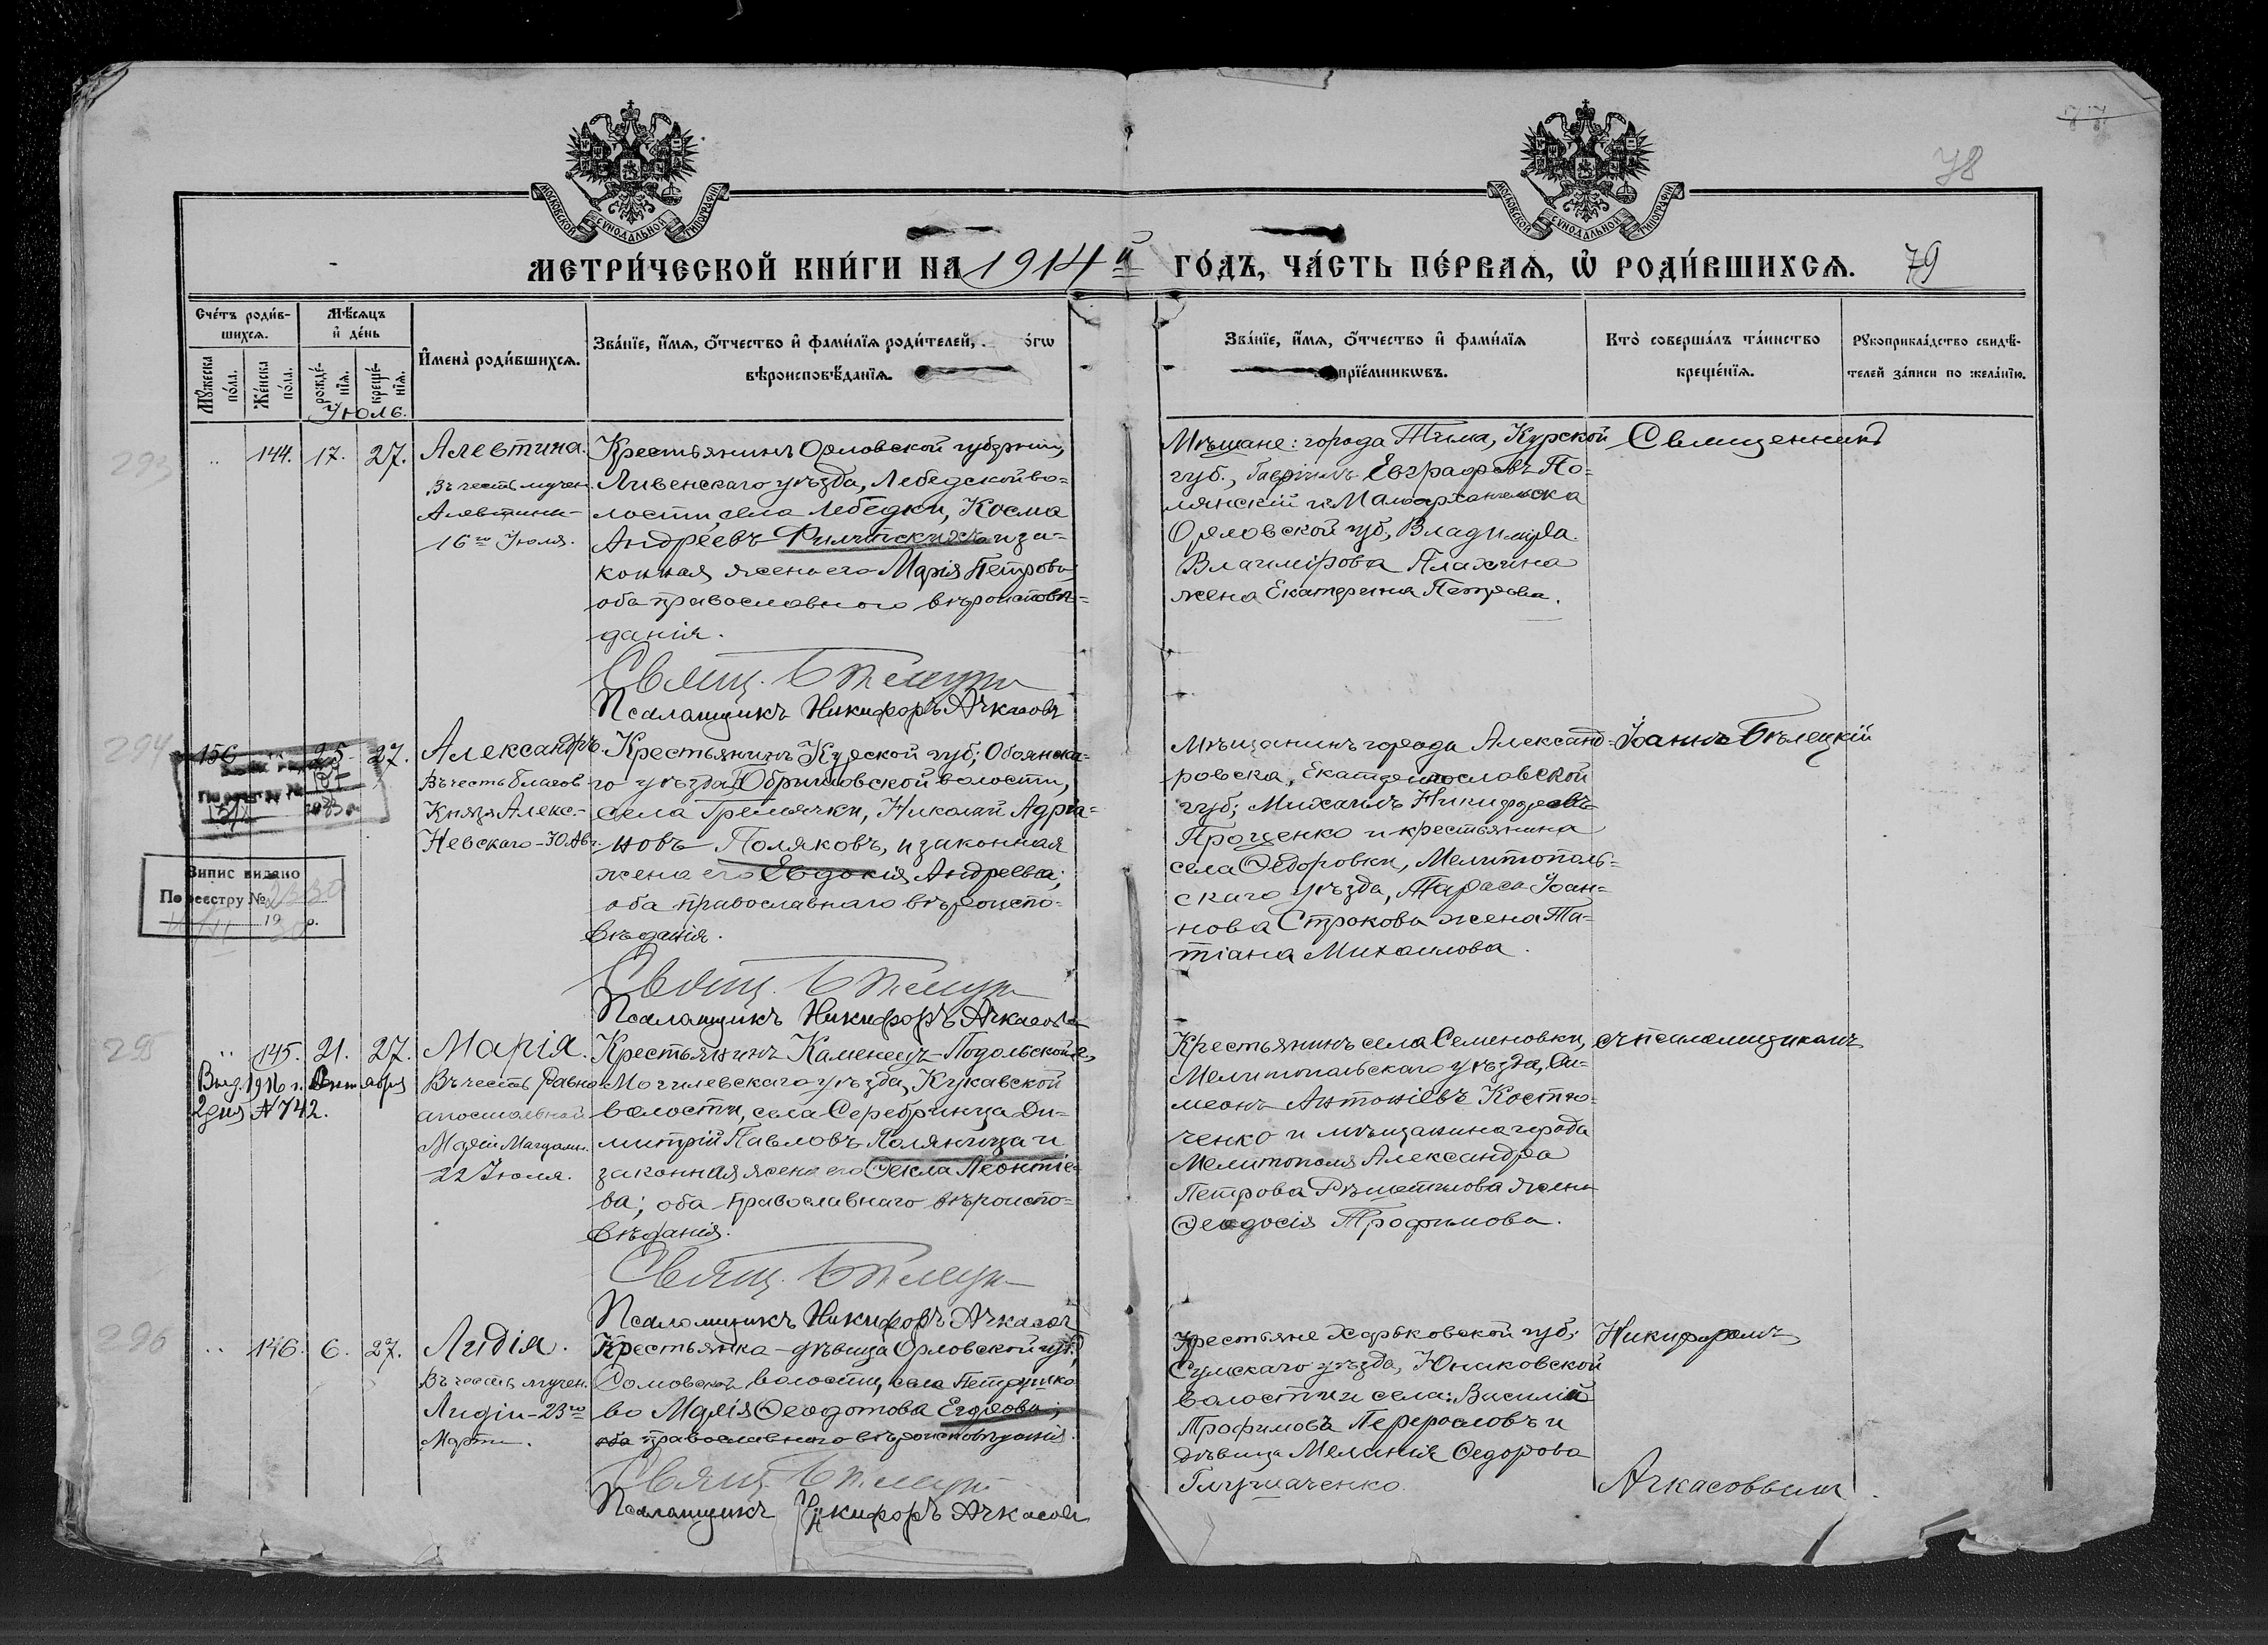 78
МОСКОВСКОЙ СУНОДАЛЬНОЙ ТИПОГРАФІИ
МОСКОВСКОЙ СУНОДАЛЬНОЙ ТИПОГРАФІИ
МЕТРИ́ЧЕСКОЙ КНИ́ГИ НА 1914й ГО́ДЪ, ЧА́СТЬ ПЕ́РВАѦ, Ѡ҆ РОДИ́ВШИХСѦ. 79
Сче́тъ роди́в-
шихсѧ.
Мѣ́сѧцъ
и҆ де́нь
Мꙋ́жеска по́ла.
Же́нска по́ла.
рожде́-нїѧ.
креще́-нїѧ.
И҆мена̀ роди́вшихсѧ.
Зва́нїе, и҆́мѧ, ѻ҆́тчество и҆ фами́лїѧ роди́телей, огѡ
вѣроисповѣ́данїѧ.
Зва́нїе, и҆́мѧ, ѻ҆́тчество и҆ фами́лїѧ
прїе́мникѡвъ.
Кто̀ соверша́лъ та́инство
креще́нїѧ.
Рꙋкоприкла́дство свидѣ́-
телей за́писи по жела́нїю.
Іюль.
293
144. 17. 27.
Алевтина.
Въ честь мучен.
Алевтины
16го Іюля.
Крестьянинъ Орловской губерніи,
Ливенскаго уѣзда, Лебедской во-
лости, села Лебедки, Косма
Андреевъ Филипскихъ и за-
конная жена его Марія Петрова,
оба православнаго вѣроисповѣ-
данія.
Свящ. Бѣлецкій
Псаломщикъ Никифоръ Ачкасовъ
Мѣщане: города Тима, Курской
губ., Гавріилъ Евграфовъ По-
лянскій и Малоархангельска
Орловской губ., Владиміра
Владимірова Плахина
жена Екатерина Петрова.
Священникъ
294
156 25 27.
Александръ.
Въ честь благов.
Князя Алекс-
Невскаго-30 Авг.
Крестьянинъ Курской губ., Обоянска-
го уѣзда, волости,
села Гремячки, Николай Адріа-
новъ Поляковъ, и законная
жена его Евдокія Андреева;
оба православнаго вѣроиспо-
вѣданія.
Свящ. Бѣлецкій
Псаломщикъ Никифоръ Ачкасовъ
Мѣщанинъ города Александ-
ровска, Екатеринославской
губ; Михаилъ Никифоровъ
Проценко и крестьянина
села Ѳедоровки, Мелитополь-
скаго уѣзда, Тараса Іоан-
нова Строкова жена Та-
тіана Михаилова.
Іоаннъ Бѣлецкій
Випис видано
По реєстру № 2330
19 р.
295
145. 21. 27.
Выд. 1916 г. Октября
2 дня № 742.
Марія.
Въ честь равно
апостольной
Маріи Магдалин.
22 Іюля.
Крестьянинъ Каменецъ-Подольской г,
Могилевскаго уѣзда, Кукавской
волости, села Серебринца Ди-
митрій Павловъ Поляница и
законная жена его Ѳекла Леонтіе-
ва; оба православнаго вѣроиспо-
вѣданія.
Свящ. Бѣлецкій
Псаломщикъ Никифоръ Ачкасовъ
Крестьянинъ села Семеновки,
Мелитопольскаго уѣзда, Си-
меонъ Антоніевъ Костю-
ченко и мѣщанина города
Мелитополя Александра
Петрова Рѣшетилова жена
Ѳеодосія Трофимова.
съ псаломщикомъ
296
146. 6. 27.
Лидія.
Въ честь мучен.
Лидіи-23го
Марта.
Крестьянка-дѣвица Орловской губ,
Сомовской волости, села
во Марія Ѳеодотова Егорова;
оба православнаго вѣроисповѣданія.
Свящ. Бѣлецкій
Псаломщикъ Никифоръ Ачкасовъ
Крестьяне Харьковской губ;
Сумскаго уѣзда, Юнаковской
волости и села: Василій
Трофимовъ Перерословъ и
дѣвица Меланія Ѳедорова
Глушаченко.
Никифоромъ
Ачкасовымъ